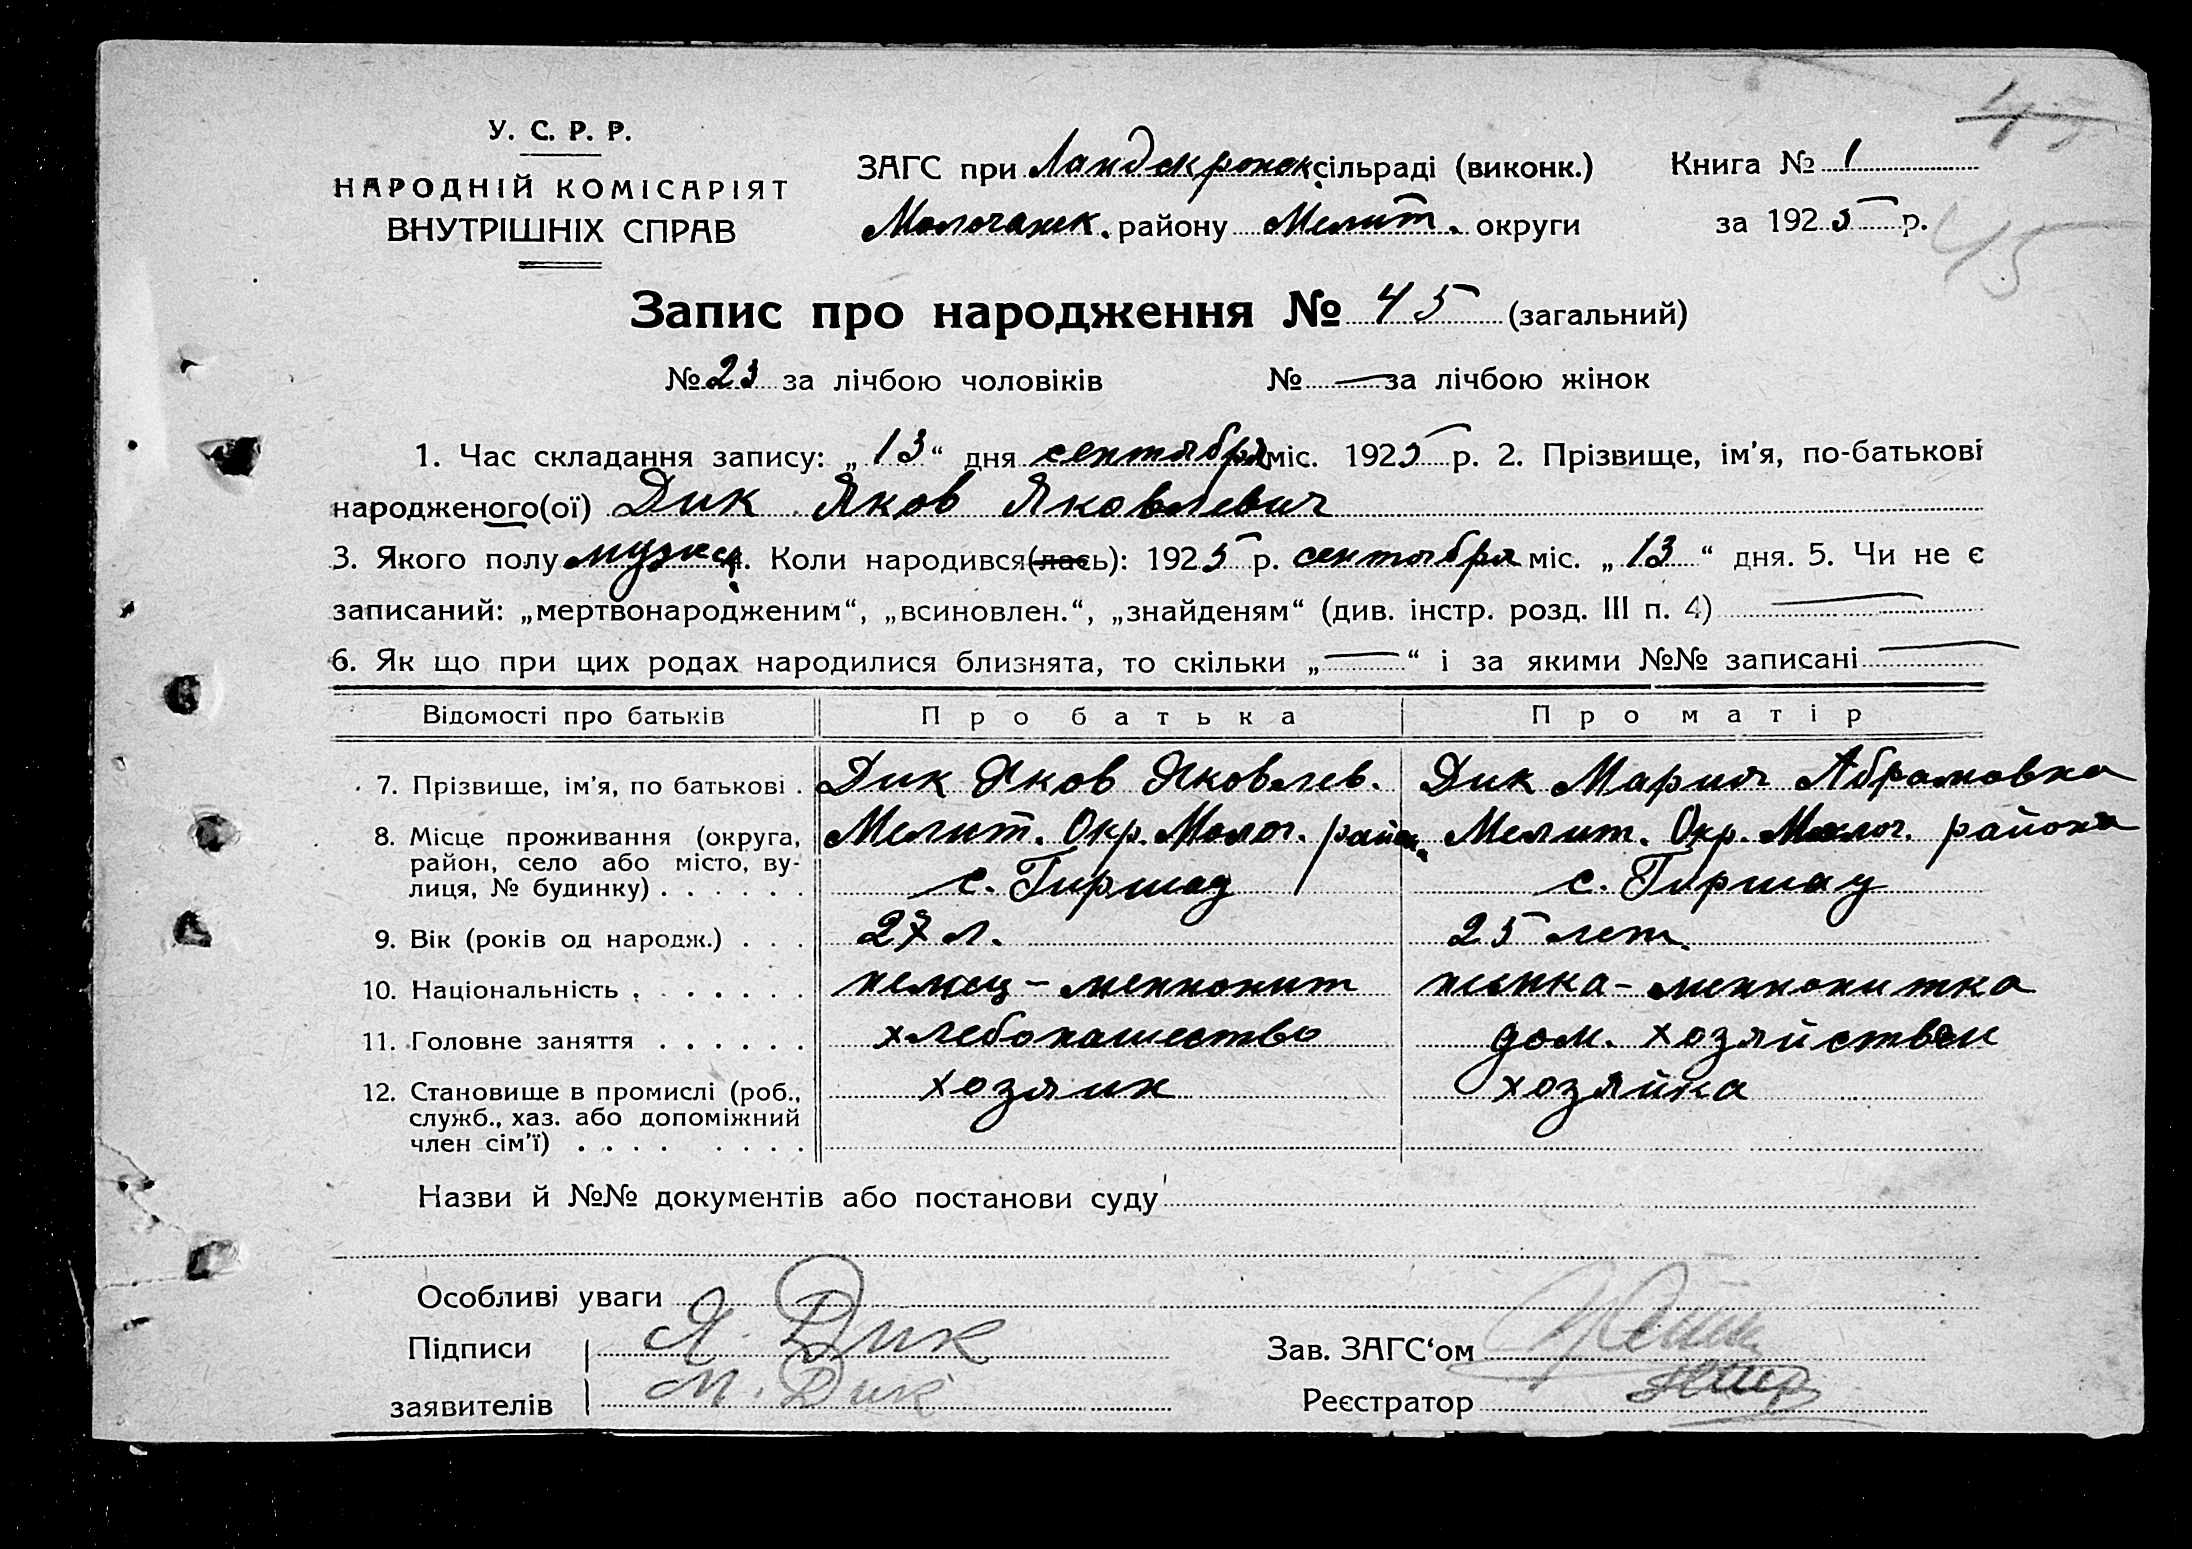 У. С. Р. Р.
НАРОДНІЙ КОМІСАРІЯТ
ВНУТРІШНІХ СПРАВ
ЗАГС при Ландскронск сільраді (виконк.)
Молочанск. району Мелит. округи
Книга № 1
за 1925 р.
45
Запис про народження № 45 (загальний)
№ 23 за лічбою чоловіків № — за лічбою жінок
1. Час складання запису: „13“ дня сентября міс. 1925 р. 2. Прізвище, ім'я, по-батькові
народженого(ої) Дик Яков Яковлевич
3. Якого полу мужск. 4. Коли народився(лась): 1925 р. сентября міс. „13“ дня. 5. Чи не є
записаний: „мертвонародженим“, „всиновлен.“, „знайденям“ (див. інстр. розд. III п. 4) —
6. Як що при цих родах народилися близнята, то скільки „—“ і за якими №№ записані —
Відомості про батьків Про батька Про матір
7. Прізвище, ім'я, по батькові . Дик Яков Яковлев. Дик Мария Абрамовна
8. Місце проживання (округа, Мелит. Окр. Молоч. район Мелит. Окр. Молоч. района
район, село або місто, ву-
лиця, № будинку) . . . . . . с. Гиршау с. Гиршау
9. Вік (років од народж.) . . . 27 л. 25 лет.
10. Національність . . . . . . . немец - меннонит немка - меннонитка
11. Головне заняття . . . . . . хлебопашество дом. хозяйством
12. Становище в промислі (роб., хозяин хозяйка
служб., хаз. або допоміжний
член сім'ї) . . . . . . . .
Назви й №№ документів або постанови суду
Особливі уваги
Підписи Я. Дик Зав. ЗАГС‘ом
заявителів М. Дик Реєстратор